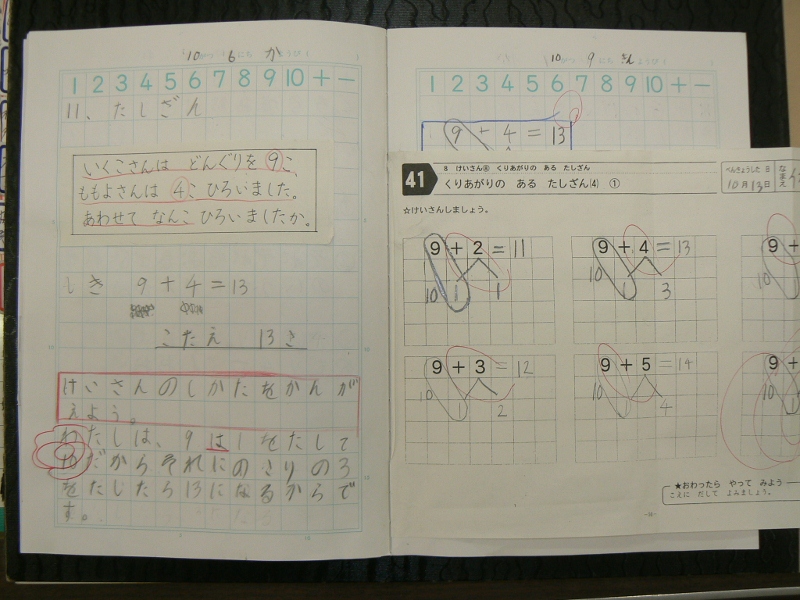 10 6 か
1 2 3 4 5 6 7 8 9 10 + −
11、たしざん
いくこさんは どんぐりを 9こ、
ももよさんは 4こ ひろいました。
あわせて なんこ ひろいましたか。
しき 9+4=13
こたえ 13こ
けいさんのしかたをかんが
えよう。
わたしは、9は1をたして
10だからそれにのこりの3
をたしたら13になるからで
す。
10 9 きん
1 2 3 4 5 6 7 8 9 10 + −
9+4=13
41
8 けいさん⑧ くりあがりの ある たしざん
くりあがりの ある たしざん(4) ①
べんきょうした 日
10月13日
なまえ
☆けいさんしましょう。
9+2=11
10 1 1
9+4=13
10 1 3
9+
10
9+3=12
10 1 2
9+5=14
10 1 4
9+
10
★おわったら やって みよう
こえに だして よみましょう。